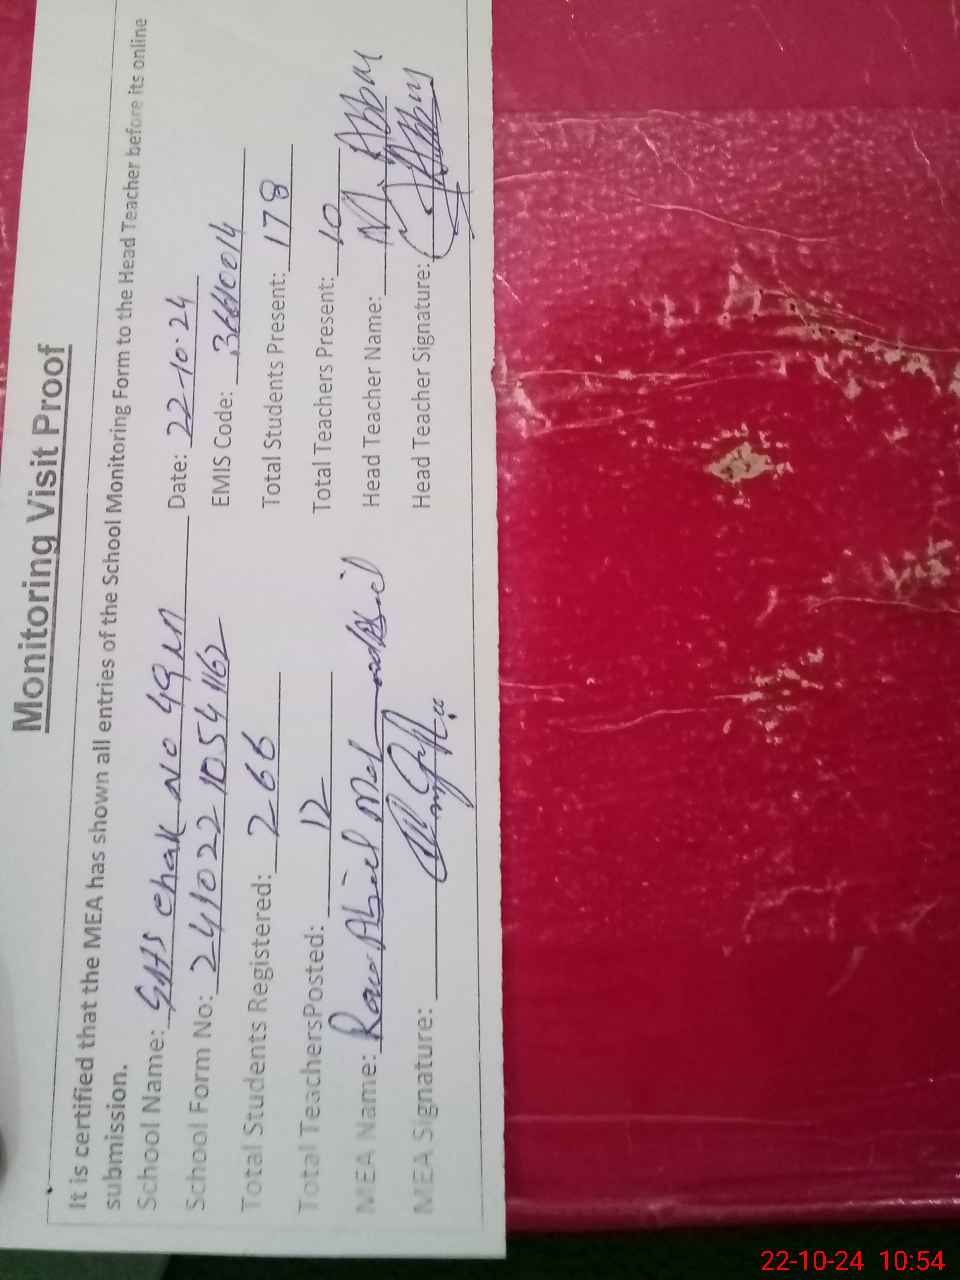 Monitoring Visit Proof
It is certified that the MEA has shown all entries of the School Monitoring Form to the Head Teacher before its online
submission.
School Name: GHS Chak No 49 Date: 22-10-24
School Form No: 241022 1054 1162 EMIS Code:
Total Students Registered: 266 Total Students Present: 178
Total TeachersPosted: 12 Total Teachers Present: 10
MEA Name: Head Teacher Name: M. Abbas
MEA Signature: Head Teacher Signature:
22-10-24 10:54